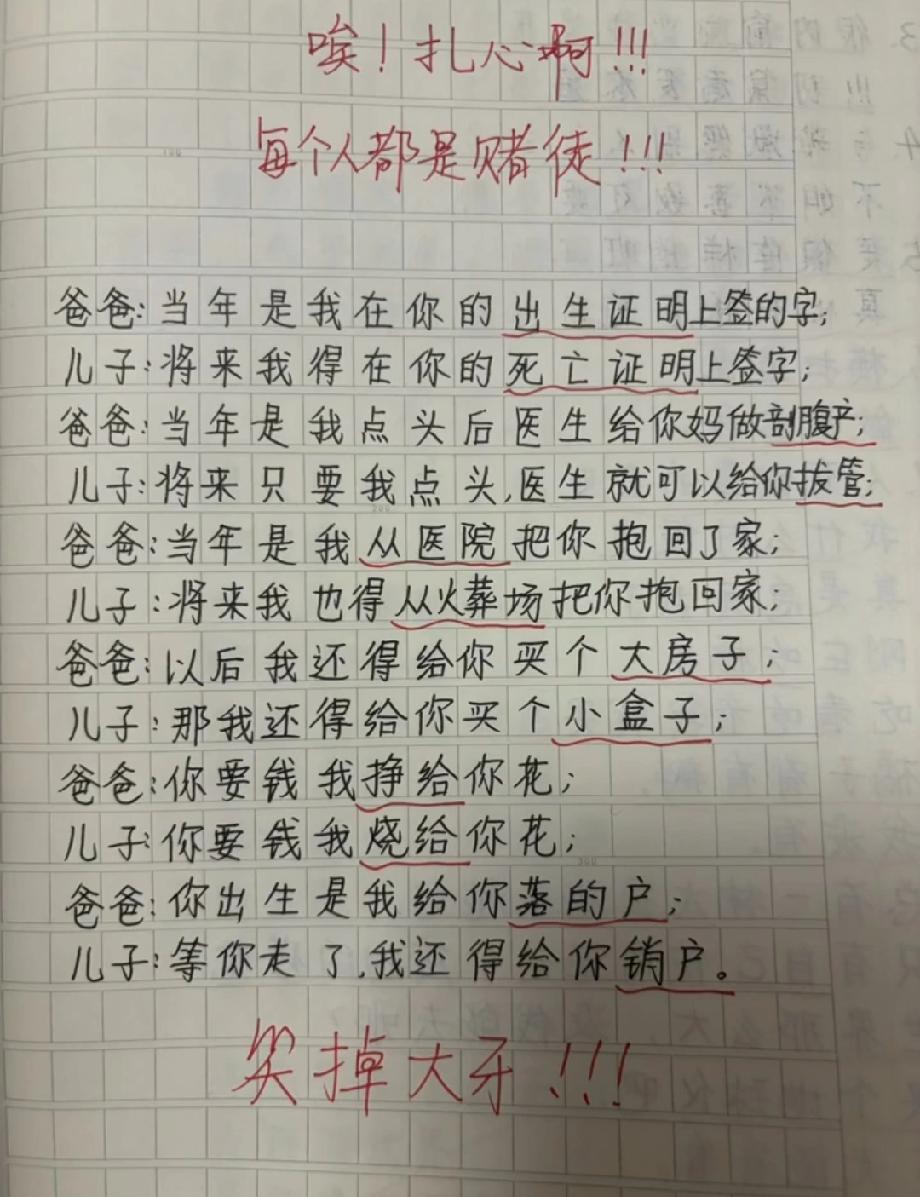 唉！扎心啊!!!
每个人都是赌徒!!!
爸爸:当年是我在你的出生证明上签的字;
儿子:将来我得在你的死亡证明上签字;
爸爸:当年是我点头后医生给你妈做剖腹产;
儿子:将来只要我点头,医生就可以给你拔管;
爸爸:当年是我从医院把你抱回了家;
儿子:将来我也得从火葬场把你抱回家;
爸爸:以后我还得给你买个大房子;
儿子:那我还得给你买个小盒子;
爸爸:你要钱我挣给你花;
儿子:你要钱我烧给你花;
爸爸:你出生是我给你落的户;
儿子:等你走了,我还得给你销户。
笑掉大牙!!!